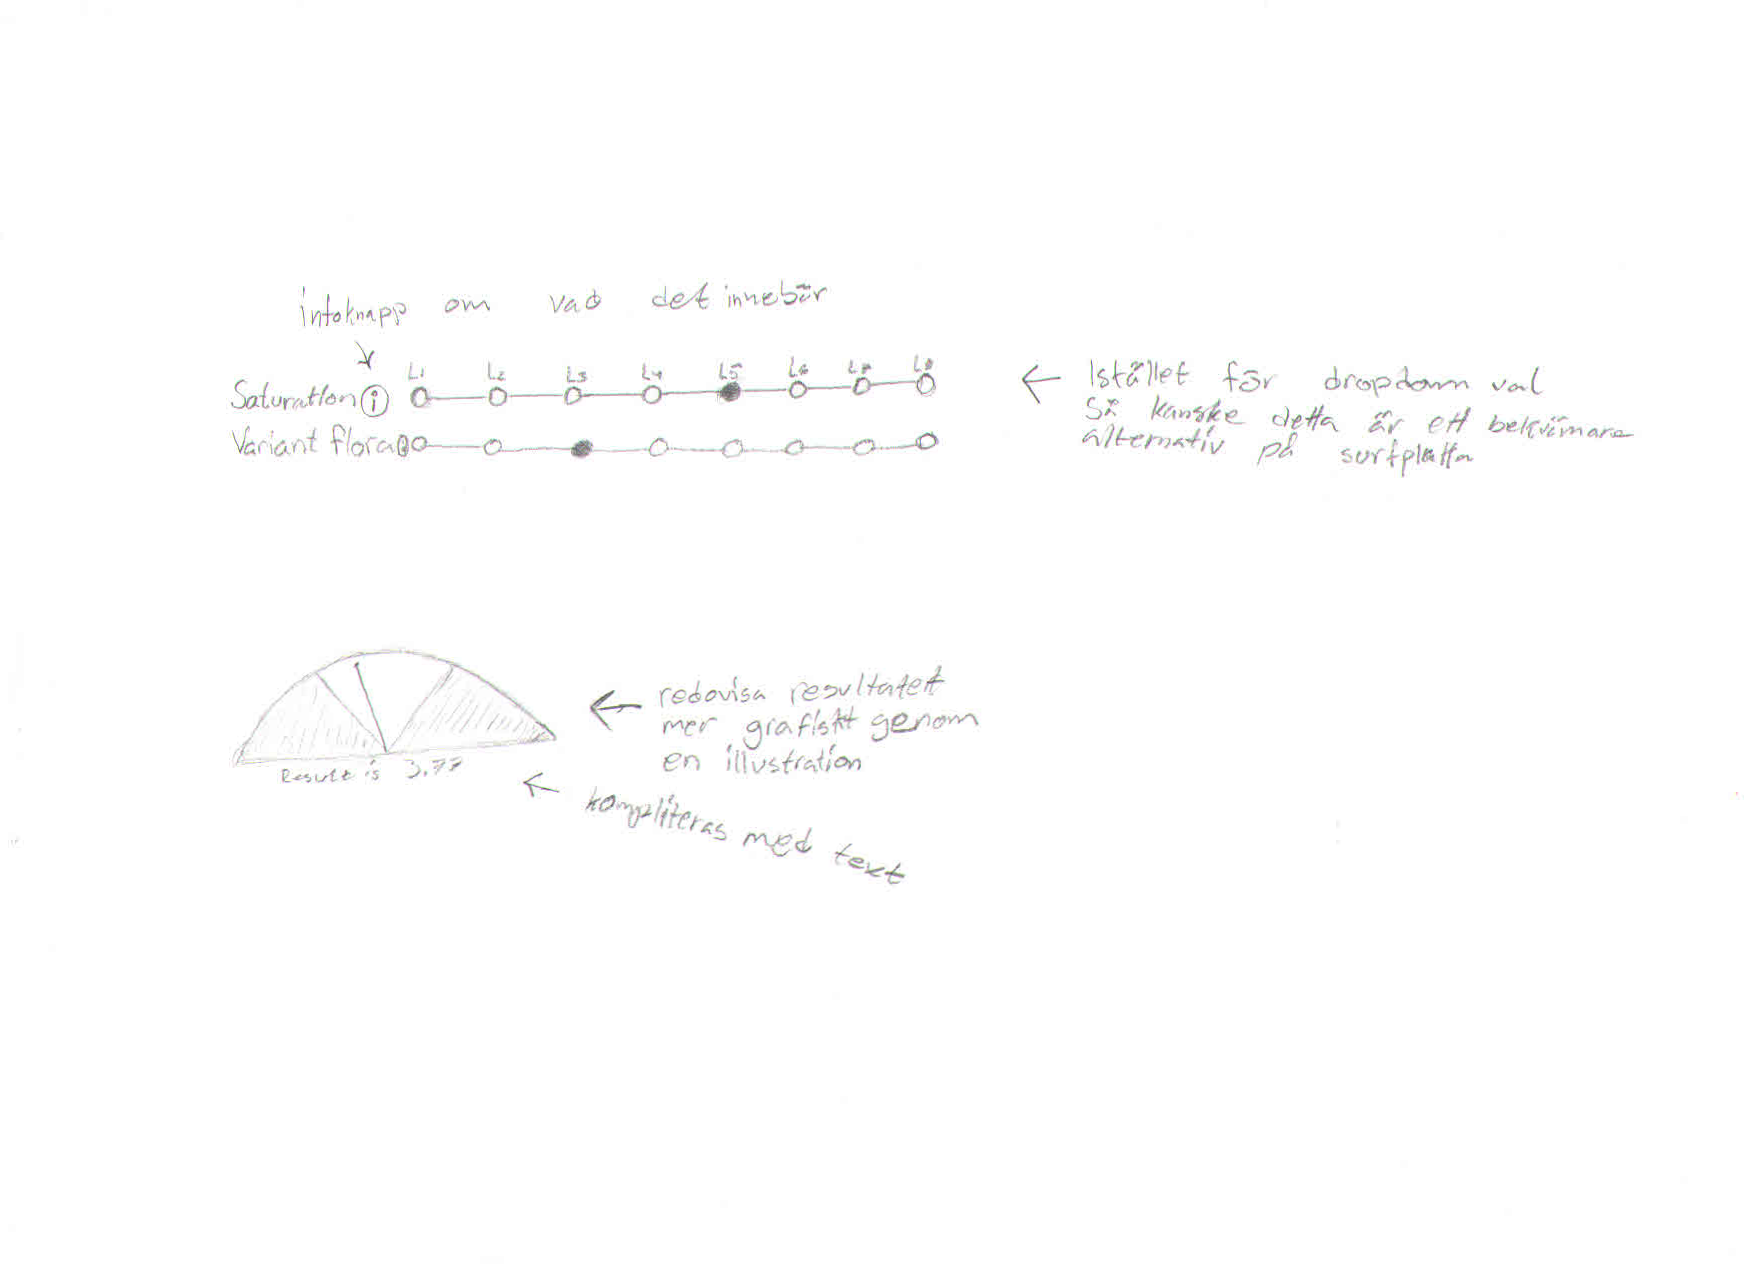 infoknapp om vad det innebär
L1 L2 L3 L4 L5 L6 L7 L8
Saturation i
Variant flora
Istället för dropdown val
så kanske detta är ett bekvämare
alternativ på surfplatta
redovisa resultatet
mer grafiskt genom
en illustration
Result is 3.77
kompliteras med text